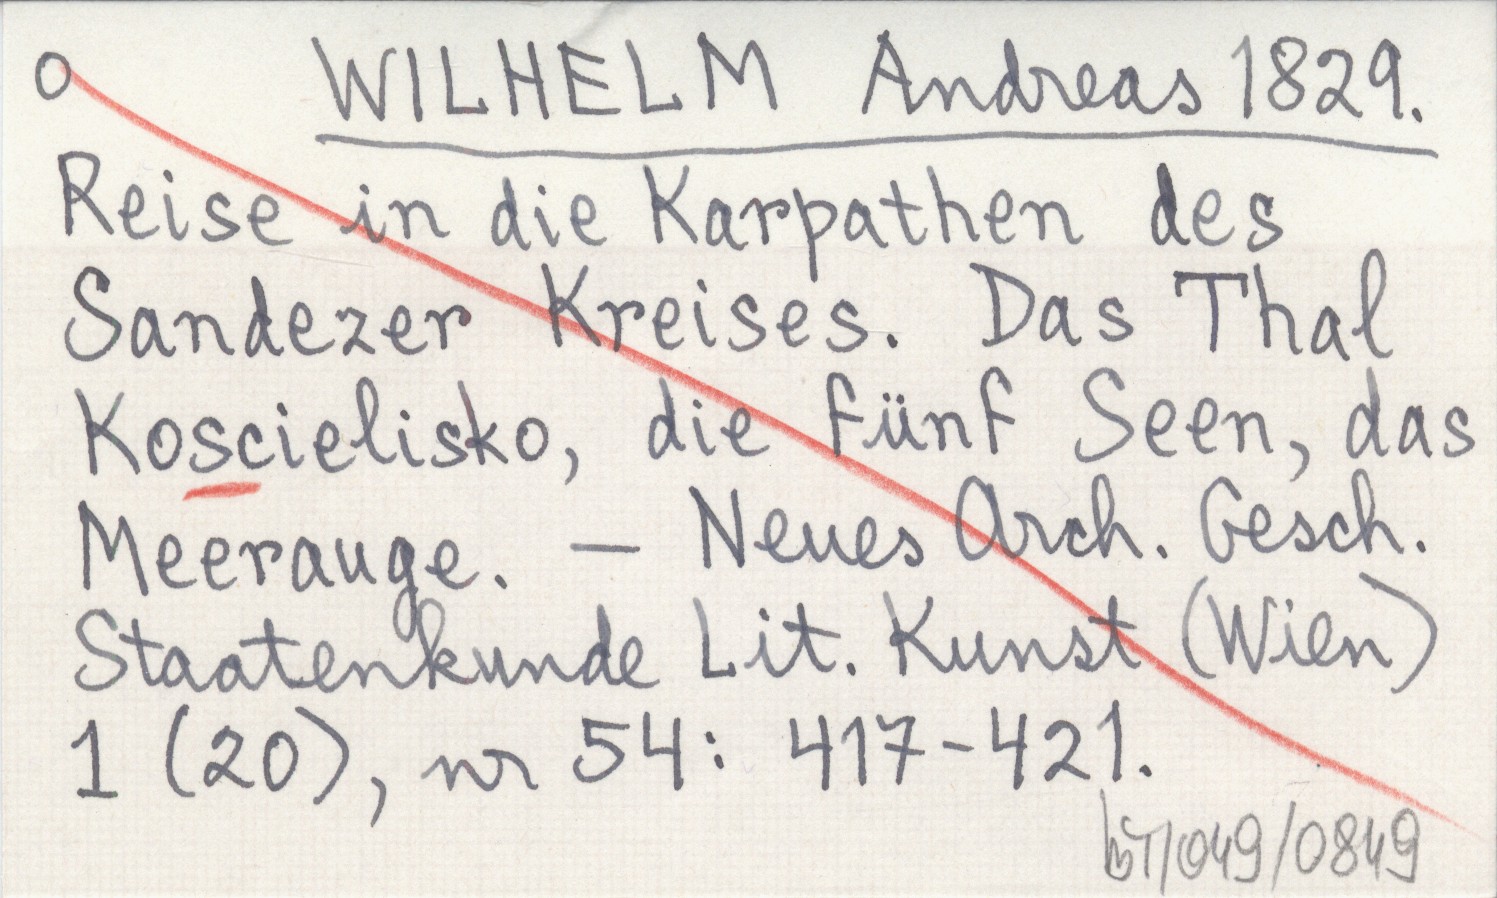 o WILHELM Andreas 1829.
Reise in die Karpathen des
Sandezer Kreises. Das Thal
Koscielisko, die fünf Seen, das
Meerauge. — Neues Arch. Gesch.
Staatenkunde Lit. Kunst (Wien)
1 (20), nr 54: 417-421.
/049/0849